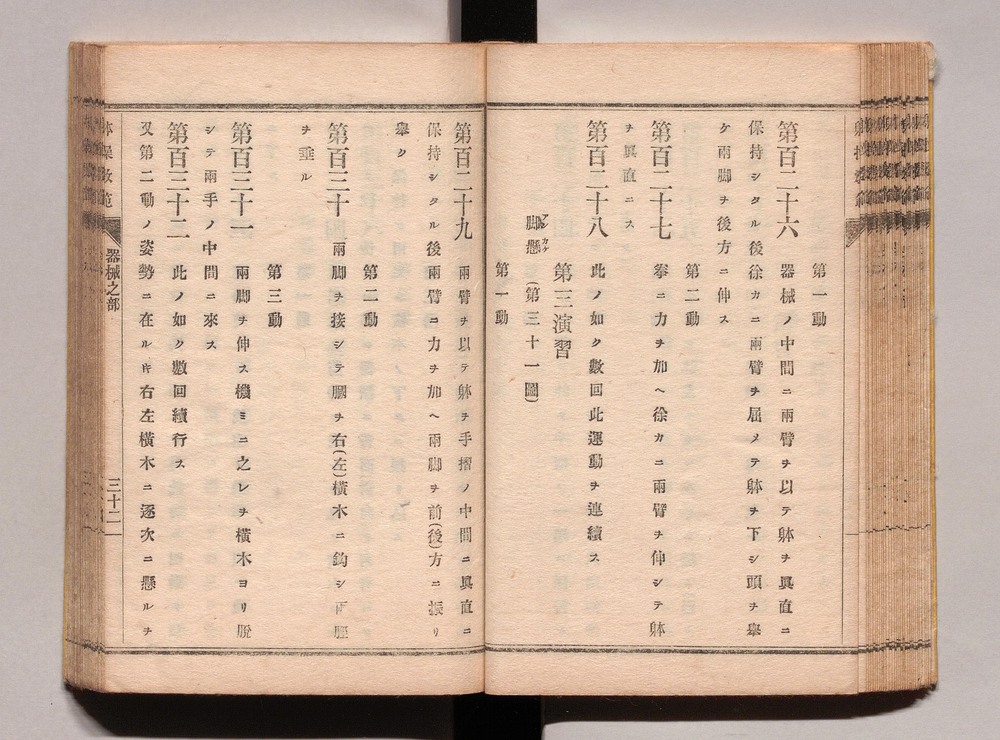 第一動
第百二十六 器械ノ中間ニ兩臂ヲ以テ躰ヲ眞直ニ
保持シタル後徐カニ兩臂ヲ屈メテ躰ヲ下シ頭ヲ擧
ケ兩脚ヲ後方ニ伸ス
第二動
第百二十七 拳ニ力ヲ加ヘ徐カニ兩臂ヲ伸シテ躰
ヲ眞直ニス
第百二十八 此ノ如ク數回此運動ヲ連續ス
第三演習
脚懸(第三十一圖)
第一動
第百二十九 兩臂ヲ以テ躰ヲ手摺ノ中間ニ眞直ニ
保持シタル後兩臂ニ力ヲ加ヘ兩脚ヲ前(後)方ニ振リ
擧ク
第二動
第百三十 兩脚ヲ接シテ膕ヲ右(左)橫木ニ鈎シ兩脛
ヲ垂ル
第三動
第百三十一 兩脚ヲ伸ス機ミニ之レヲ橫木ヨリ脫
シテ兩手ノ中間ニ來ス
第百三十二 此ノ如ク數回續行ス
又第二動ノ姿勢ニ在ルキ右左橫木ニ逐次ニ懸ルヲ
体操教範 器械之部 三十二